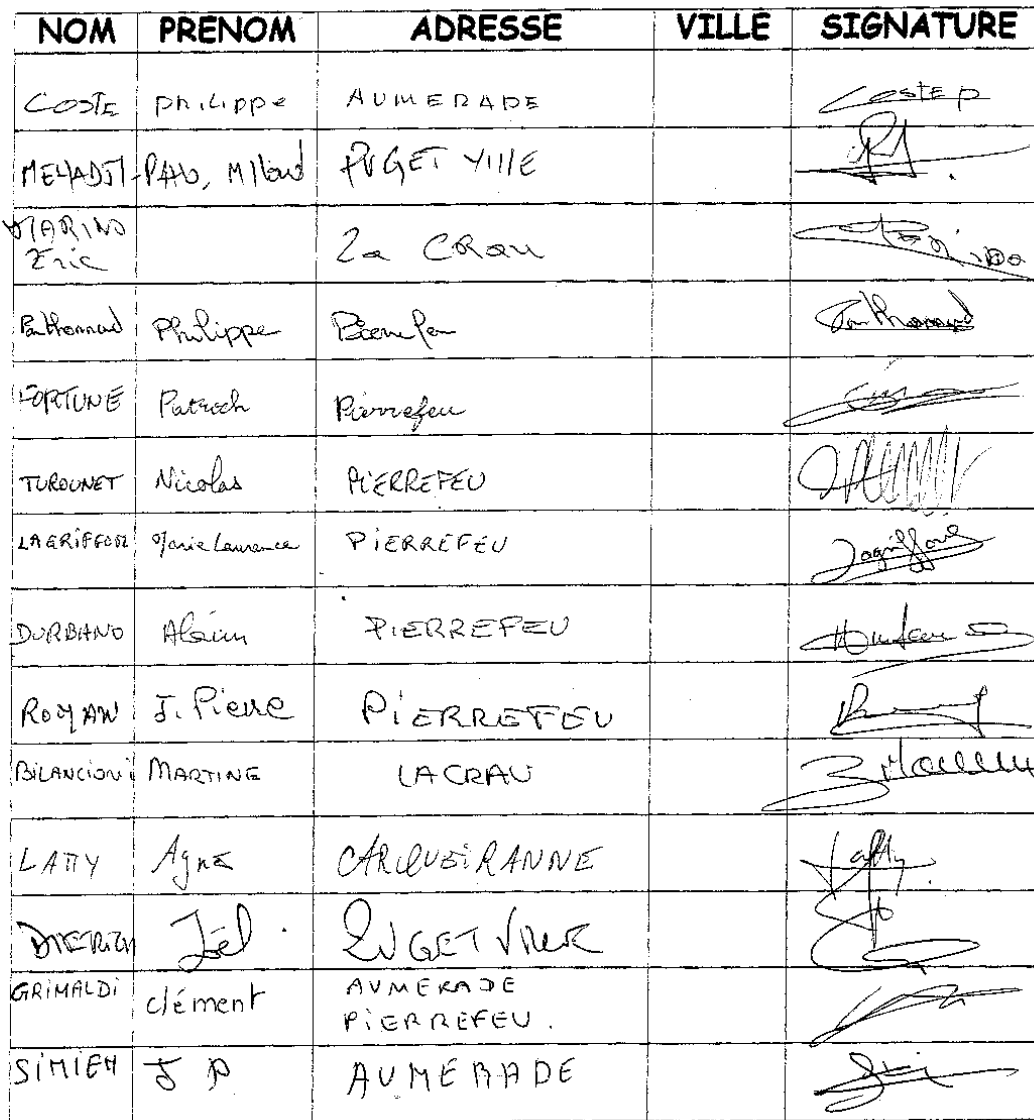 NOM PRENOM ADRESSE VILLE SIGNATURE
COSTE Philippe AUMERADE Coste P
MEHADJI PAUL, Miloud PUGET VILLE
MARINO
Eric La CRau Marino
Ponthonnaud Philippe Pierrefeu Ponthonnaud
FORTUNE Patrick Pierrefeu
TUROUNET Nicolas PIERREFEU
LAGRIFFOUL Marie Laurence PIERREFEU Lagriffoul
DURBANO Alain PIERREFEU
ROMAN J. Pierre PIERREFEU
BILANCIONI MARTINE LA CRAU
LATTY Agnè CARQUEIRANNE Latty
DIETRICH Joël PUGET VILLE
GRIMALDI Clément AUMERADE
PIERREFEU.
SIMIEN J P AUMERADE